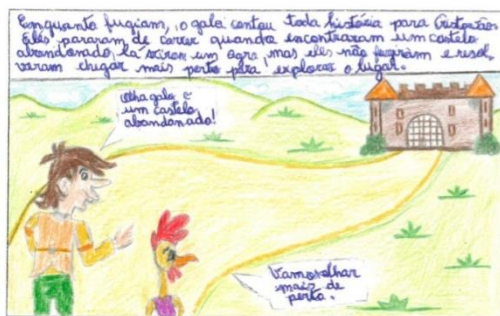 Enquanto fugiam, o galo contou toda história para
Eles pararam de correr quando encontraram um castelo
abandonado, lá viram um ogro, mas eles não fugiram e resol-
veram chegar mais perto para explorar o lugar.
olha galo é
um castelo
abandonado!
Vamos olhar
mais de
perto.